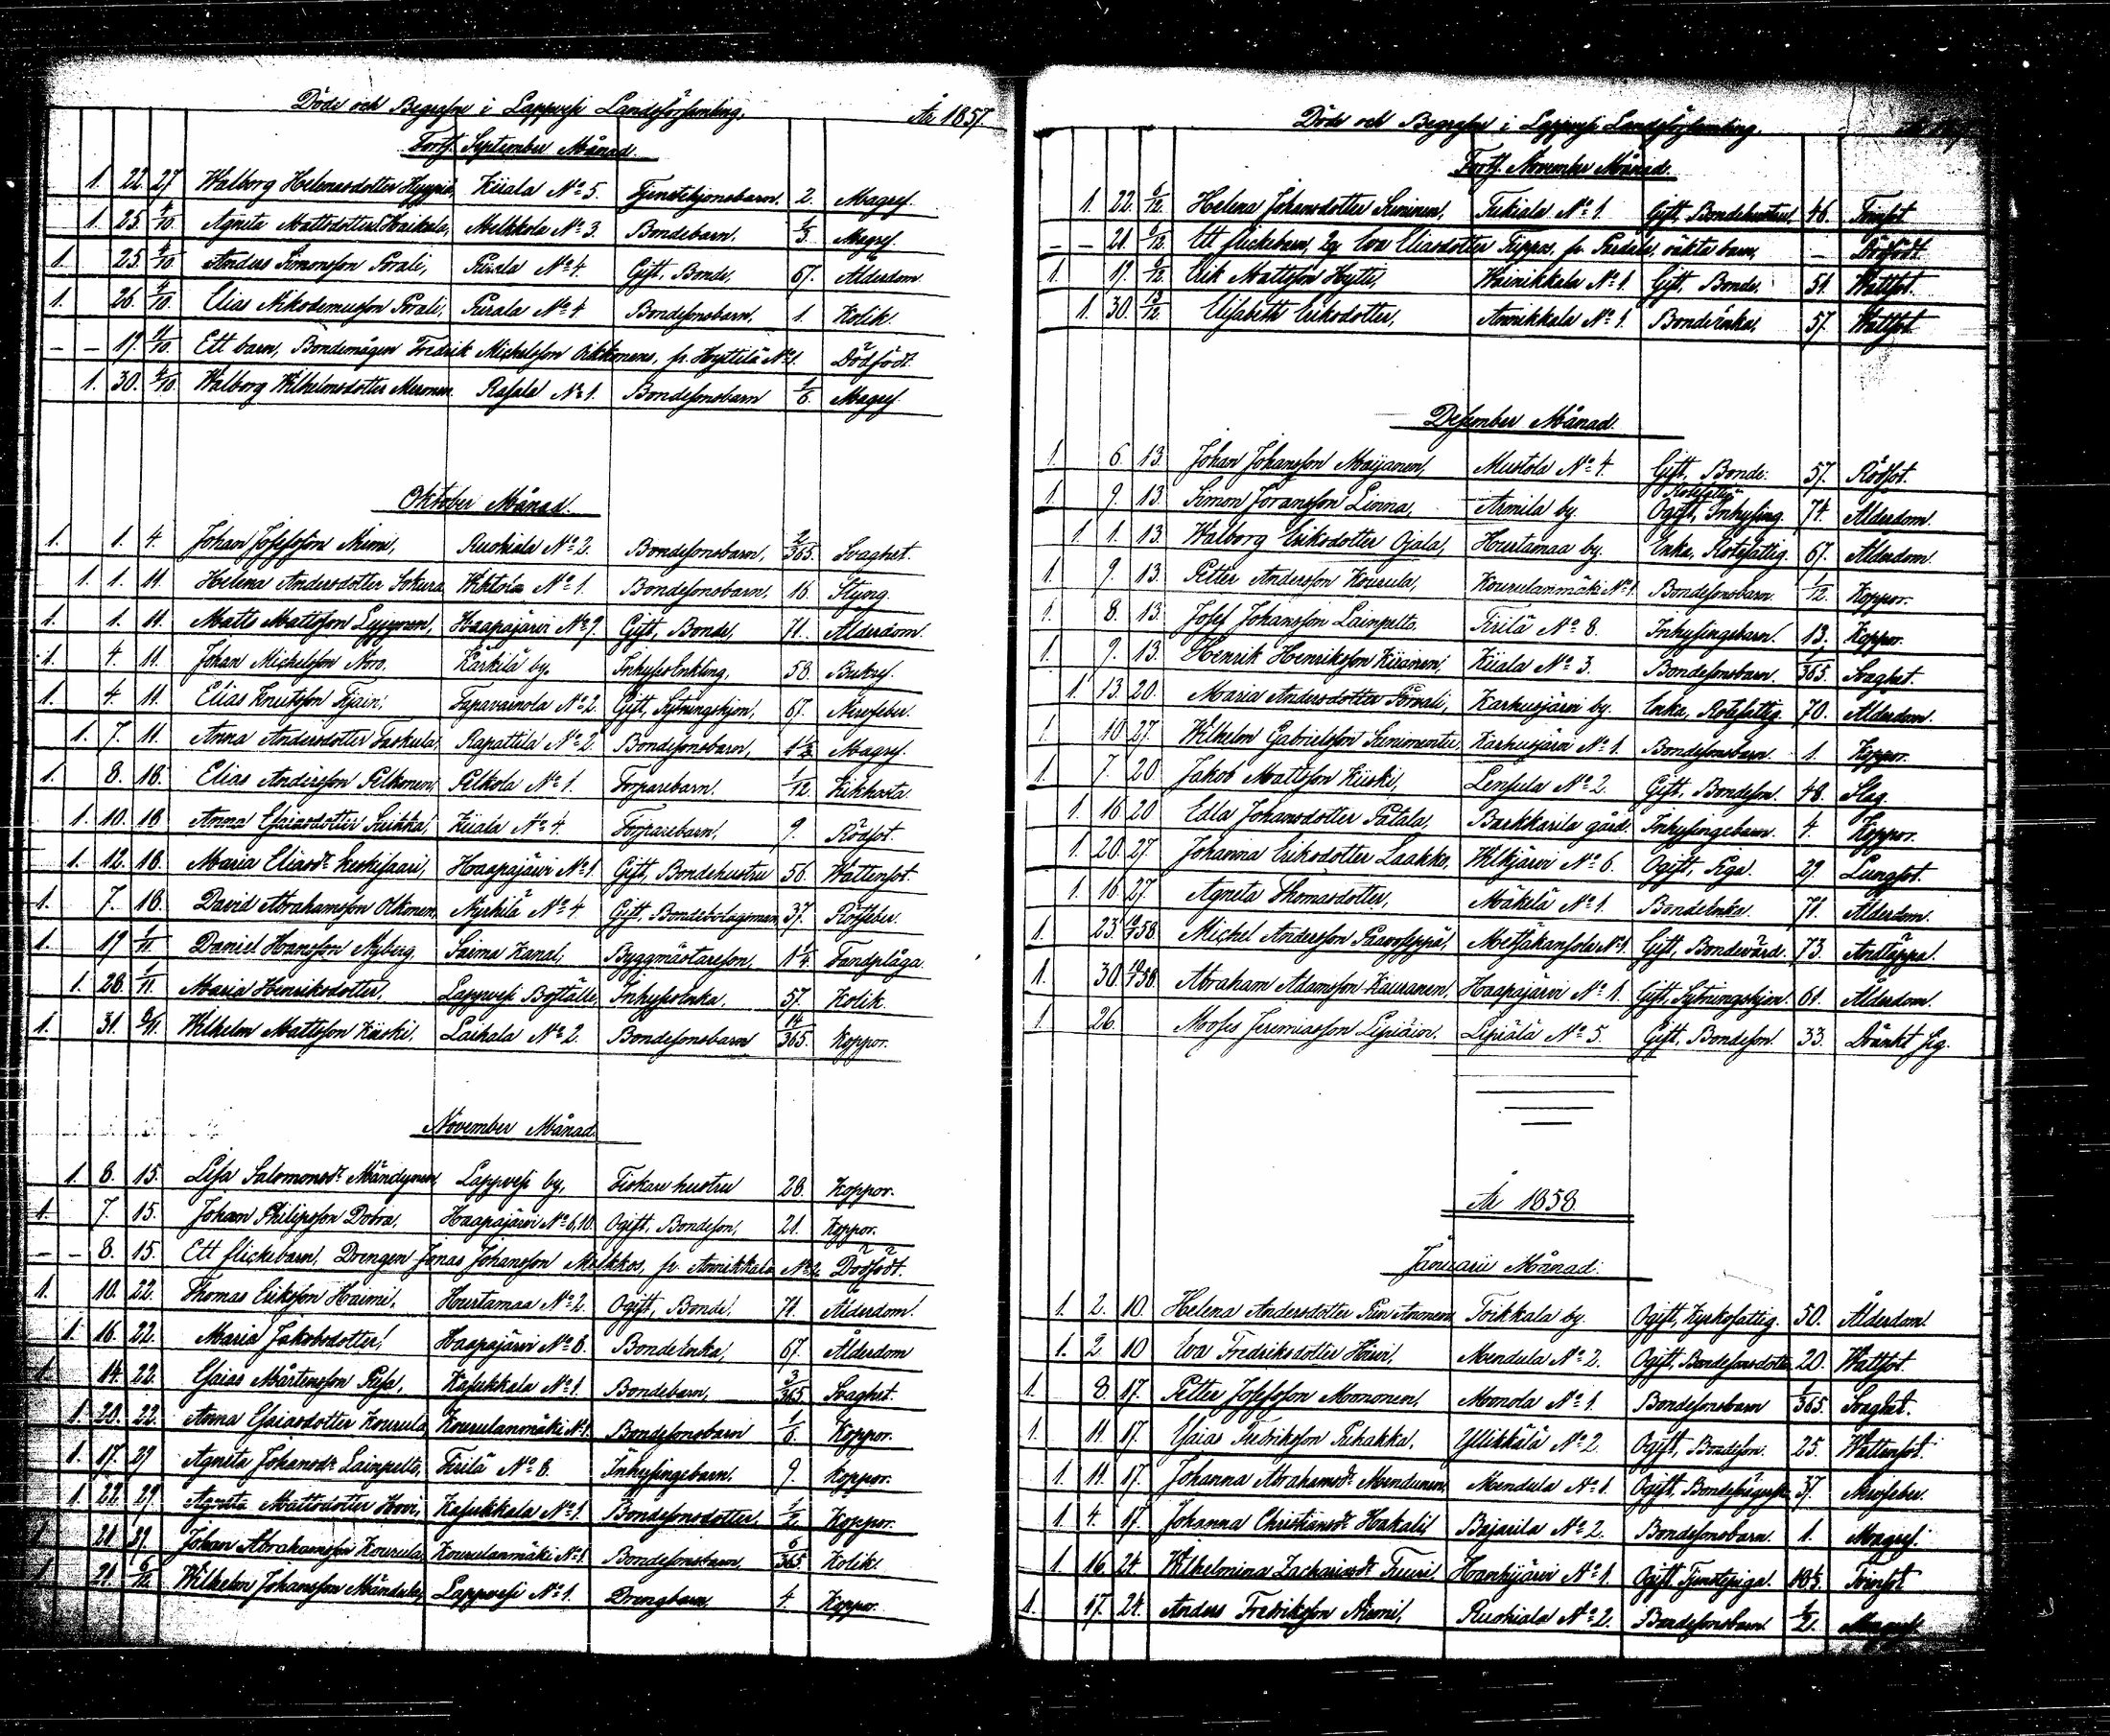 Döde och Begrafne i Lappvesi Landsförsamling. År 1857.
Forts. September Månad.
1. 22. 27 Walborg Helenasdotter Hyypiä, Kiiala No 5. Tjenstehjonsbarn. 2. Magref.
1. 25. 4/10. Agneta Mattsdotter Kaikula, Melkkola No 3. Bondebarn. 1/3 Magref.
1. 25. 4/10 Anders Simonsson Porali, Purala No 4. Gift, Bonde, 67. Ålderdom.
1. 26. 4/10. Elias Nikodemusson Porali, Purala No 4 Bondesonsbarn, 1. Kolik.
— — 19. 4/10. Ett barn, Bondemågen Fredrik Michelsson Oikkonens, fr. Hyttilä No 1. Dödfödt.
1. 30. 4/10. Walborg Wilhelmsdotter Mermen. Rasala No 1. Bondesonsbarn 1/6 Magref.
Oktober Månad.
1. 1. 4. Johan Josefsson Niemi, Ruohiala No 2. Bondesonsbarn, 2/365. Svaghet.
1. 1. 11. Helena Andersdotter Sokura, Wihtola No 1. Bondesonsbarn, 16. Styng.
1. 1. 11. Matts Mattsson Lyyjynen, Haapajärvi No 9. Gift, Bonde, 71. Ålderdom.
1. 4. 11. Johan Michelsson Noro, Kärkilä by. Inhyses Enkling, 58. Bukref.
1. 4. 11. Elias Knutsson Tjäin, Tapavainola No 2. Gift, Sytningshjon, 67. Nervfeber.
1. 7. 11. Anna Andersdotter Taskula, Rapattila No 2. Bondesonsbarn, 1 1/2 Magref.
1. 8. 18. Elias Andersson Pelkonen, Pelkola No 1. Torparebarn. 1/12. Kikhosta.
1. 10. 18 Anna Esaiasdotter Sukka, Kiiala No 4. Torparebarn, 9. Rödsot.
1. 12. 18. Maria Eliasdr Keskisaari, Haapajärvi No 1. Gift, Bondehustru 56. Wattensot.
1. 7. 18. David Abrahamsson Olkonen, Nyrhilä No 4. Gift, Bondebolagsman, 37. Rötfeber.
1. 19 1/11. Daniel Hansson Nyberg, Saima Kanal, Byggmästareson, 1 1/4. Tandplåga.
1. 28. 1/11. Maria Henriksdotter, Lappvesi Boställe, Inhysesenka, 57. Kolik.
1. 31. 8/11. Wilhelm Mattsson Kiiski, Laihala No 2. Bondesonsbarn 14/365. Koppor.
November Månad.
1. 8. 15. Lisa Salomonsdr Mändynen, Lappvesi by, Fiskare hustru 28. Koppor.
1. 7. 15. Johan Philipsson Dobra, Haapajärvi No 6, 10. Ogift, Bondeson, 21. Koppor.
— — 8. 15. Ett flickebarn, Drengen Jonas Johansson Melkkos, fr. Annikkala No 2 Dödfödt.
1. 10. 22. Thomas Eriksson Hurmi, Hurtamaa No 2. Ogift, Bonde, 71. Ålderdom.
1. 16. 22. Maria Jakobsdotter, Haapajärvi No 8. Bonde Enka, 67. Ålderdom
1 14. 22. Esaias Mårtensson Pusa, Kasukkala No 1. Bondebarn, 3/365. Svaghet.
1. 20. 22. Anna Esaiasdotter Kourula, Kourulanmäki No 1. Bondesonsbarn 1/6 Koppor.
1. 17. 29 Agneta Johansdr Lainpelto, Tirilä No 8. Inhysingebarn, 9. Koppor.
1. 22. 29. Agneta Mattsdotter Hovi, Kasukkala No 1. Bondesonsdotter. 1/2. Koppor.
1 21. 29. Johan Abrahamsson Kourula, Kourulanmäki No 1. Bondesonsbarn, 6/365. Kolik.
1 21. 6/12. Wilhelm Johansson Mändula, Lappvesi No 1. Drengbarn 4. Koppor.
Döde och Begrafne i Lappvesi Landsförsamling.
Forts. November Månad.
1. 22. 6/12. Helena Johansdotter Suninen, Tukiala No 1. Gift, Bondehustru, 46. Tvinsot
— — 21. 6/12. Ett flickebarn, Eva Eliasdotter Tuppas, oäkta barn, — Dödfödt.
1. 19. 6/12. Erik Mattsson Hytti, Wainikkala No 1. Gift, Bonde. 51. Wattsot.
1. 30. 13/12 Elisabeth Eriksdotter, Annikkala No 1. Bonde Enka, 57. Wattsot.
Desember Månad.
1. 6. 13. Johan Johansson Maijanen, Mustola No 4. Gift, Bonde. 57. Rödsot.
1. 9. 13. Simon Joransson Linna, Armila by. Rotefattig Ogift, Inhysing. 74. Ålderdom.
1 1. 13. Walborg Eriksdotter Ojala, Hurtamaa by. Enka, Rotefattig. 67. Ålderdom.
1. 9. 13. Petter Andersson Kourula, Kourulanmäki No 1. Bondesonsbarn. 1/12. Koppor.
1. 8. 13. Josef Johansson Lainpelto, Tirilä No 8. Inhysingebarn. 13. Koppor.
1. 9. 13. Henrik Henriksson Kiiranen, Kiiala No 3. Bondesonsbarn. 1/365. Svaghet.
1. 13. 20. Maria Andersdotter Porvali, Karhusjärvi by. Enka, Rotefattig. 70. Ålderdom.
1. 10 27. Wilhelm Gabrielsson Sunimento, Karhusjärvi No 1. Bondesonsbarn. 1. Koppor.
1. 7. 20. Jakob Mattsson Kiiski, Lensula No 2. Gift, Bondeson. 48. Slag.
1. 16. 20 Edla Johansdotter Patala, Barkkarila gård. Inhysingebarn. 4. Koppor.
1. 20. 27. Johanna Eriksdotter Laakko, Wilkjärvi No 6. Ogift, Piga. 29 Lungsot.
1. 16. 27. Agneta Thomasdotter, Mäkelä No 1. Bonde Enka. 71. Ålderdom.
1. 23. 10/1 58. Michel Andersson Paavoseppä, Metsäkansola No 1. Gift, Bondevärd. 73. Andtäppa.
1. 30. 10/1 58. Abraham Adamsson Kauranen, Haapajärvi No 1. Gift, Sytningshjon. 61. Ålderdom.
1. 26. Moses Jeremiasson Lipiäin, Lipiälä No 5. Gift, Bondeson. 33. Dränkt sig.
År 1858.
Januarii Månad.
1. 2. 10. Helena Andersdotter Toikkala by. Ogift, Kyrkofattig. 50. Ålderdom.
1. 2 10 Eva Fredriksdotter Hirvi, Mendula No 2. Ogift, Bondesonsdotter 20. Wattsot.
1. 8. 17. Petter Josefsson Mononen, Monola No 1. Bondesonsbarn 1/365. Svaghet.
1. 11. 17. Esaias Fredriksson Puhakka, Yllikkälä No 2. Ogift, Bondeson. 25. Wattensot.
1. 11. 17. Johanna Abrahamsdr Mendunen, Mendula No 1. Ogift, 37. Nervfeber.
1. 4. 17. Johanna Christiansdr Hakalis Bajarila No 2. Bondesonsbarn. 1. Magref.
1. 16. 24. Wilhelmina Zachariasdr Tuuri, Hanhijärvi No 1. Ogift Tjenstepiga. Tvinsot
1. 17. 24. Anders Fredriksson Niemi, Ruohiala No 2. Bondesonsbarn. 1/2. Magref.